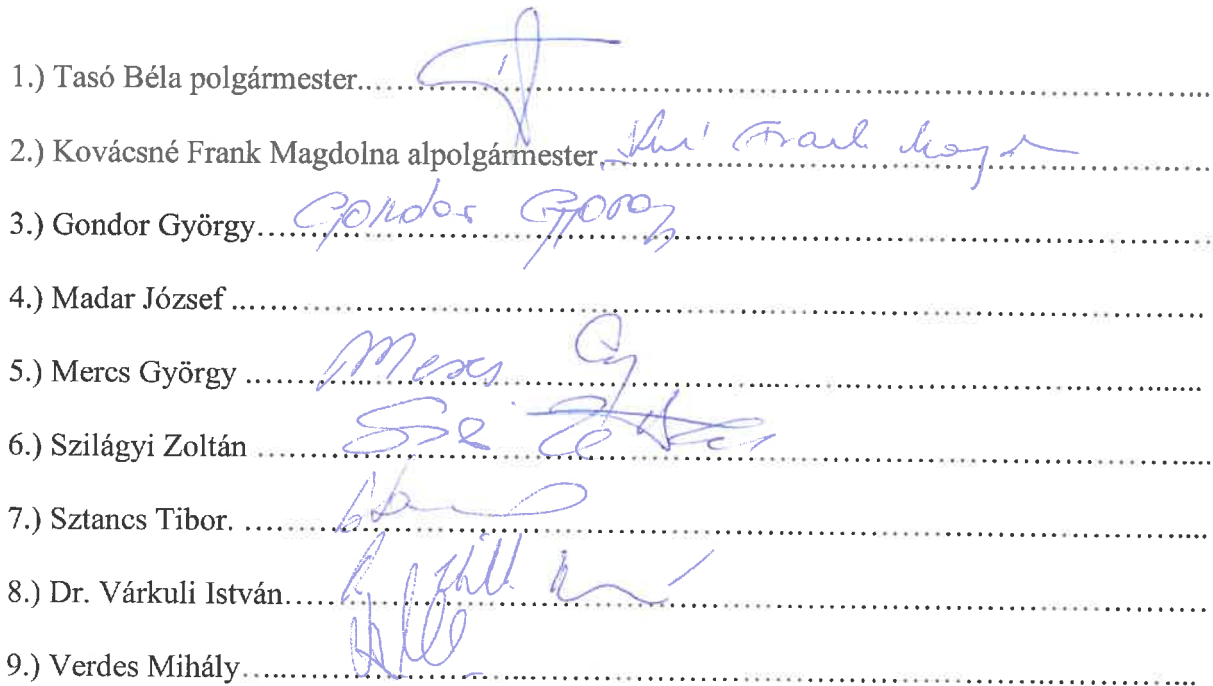 1.) Tasó Béla polgármester.....
2.) Kovácsné Frank Magdolna alpolgármester..... Frank
3.) Gondor György..... Gondor György
4.) Madar József.....
5.) Mercs György..... Mercs Gy
6.) Szilágyi Zoltán.....
7.) Sztancs Tibor. .....
8.) Dr. Várkuli István.....
9.) Verdes Mihály.....